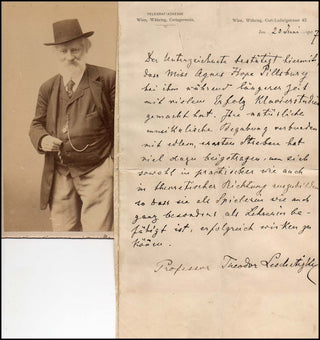 TELEGRAMMADRESSE
Wien, Währing, Cottagéverein.
Wien, Währing, Carl-Ludwigstrasse 42.
den 20 Juni 1907
Der Unterzeichnete bestätigt hiermit
dass Miss Agnes Hope Pillsbury
bei ihm während längerer Zeit
mit vielem Erfolg Klavierstudien
gemacht hat. Ihre natürliche
musikalische Begabung verbunden
mit edlem, ernsten Streben hat
viel dazu beigetragen um sich
sowohl in praktischer wie auch
in theoretischer Richtung auszubilden
so dass sie als Spielerin wie auch
ganz besonders als Lehrerin be-
fähigt ist, erfolgreich wirken zu
können.
Professor Theodor Leschetizky